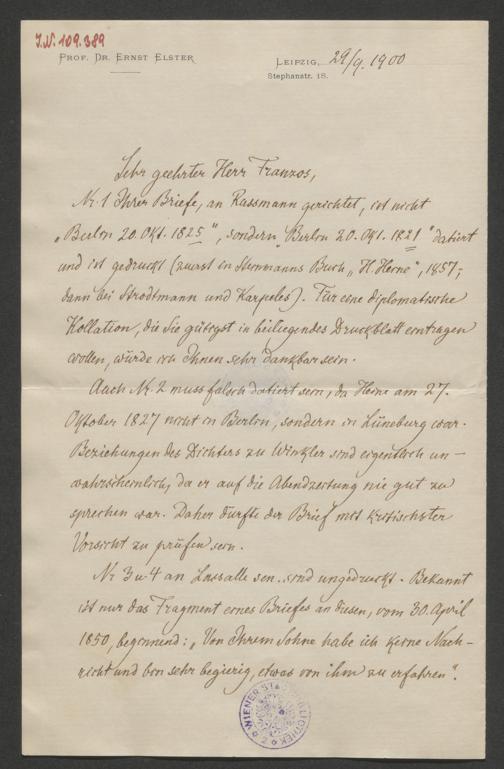 I.N. 109.389
PROF. DR. ERNST ELSTER
LEIPZIG, 29/9. 1900
Stephanstr. 18.
Sehr geehrter Herr Franzos,
Nr. 1 Ihrer Briefe, an Rassmann gerichtet, ist nicht
„Berlin 20. Okt. 1825", sondern „Berlin 20. Okt. 1821" datiert
und ist gedruckt (zuerst in Steinmanns Buch „H. Heine", 1857,
dann bei Strodtmann und Karpeles). Für eine diplomatische
Kollation, die Sie gütigst in beiliegendes Druckblatt eintragen
wollen, würde ich Ihnen sehr dankbar sein.
Auch Nr. 2 muss falsch datiert sein, da Heine am 27.
Oktober 1827 nicht in Berlin, sondern in Lüneburg war.
Beziehungen des Dichters zu Winkler sind eigentlich un-
wahrscheinlich, da er auf die Abendzeitung nie gut zu
sprechen war. Daher dürfte der Brief mit kritischster
Vorsicht zu prüfen sein.
Nr 3 u 4 an Lassalle sen. sind ungedruckt. Bekannt
ist nur das Fragment eines Briefes an diesen, vom 30. April
1850, beginnend: „Von Ihrem Sohne habe ich keine Nach-
richt und bin sehr begierig, etwas von ihm zu erfahren".
WIENER STADTBIBLIOTHEK